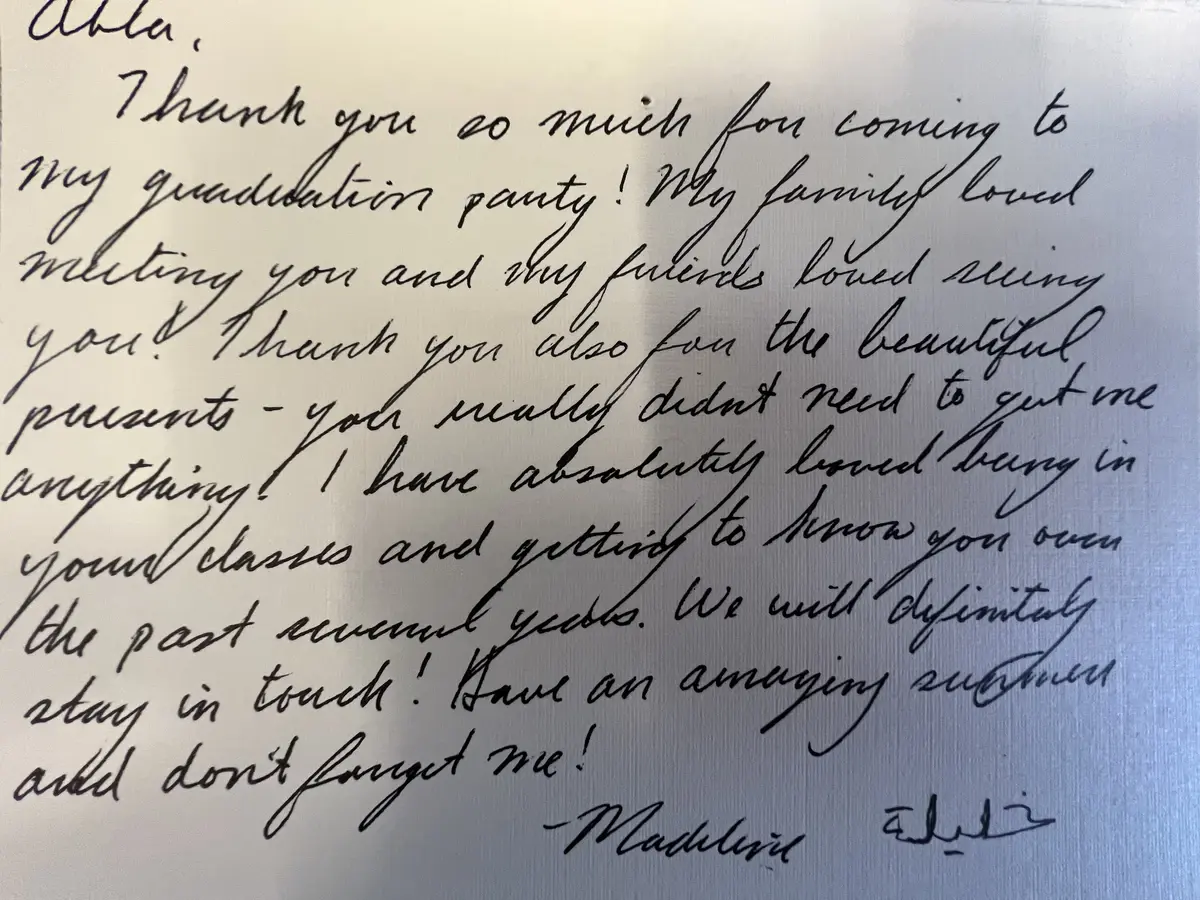 Abla,
Thank you so much for coming to
my graduation party! My family loved
meeting you and my friends loved seeing
you! Thank you also for the beautiful
presents - you really didn't need to get me
anything! I have absolutely loved being in
your classes and getting to know you over
the past several years. We will definitely
stay in touch! Have an amazing summer
and don't forget me!
-Madeline خليلة